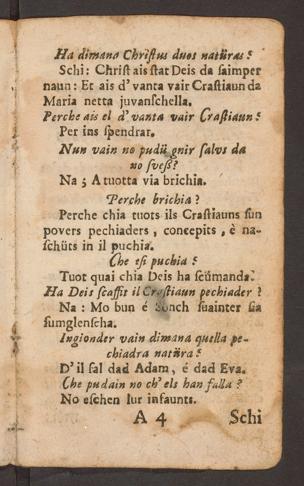 Ha dimana Christus duos natüras?
Schi: Christ ais stat Deis da saimper
naun: Et ais d'vanta vair Crastiaun da
Maria netta juvanschella.
Perche ais el d'vanta vair Crastiaun?
Per ins spendrar.
Nun vain no pudü gnir salvs da
no svess?
Na; A tuotta via brichia.
Perche brichia?
Perche chia tuots ils Crastiauns sun
povers pechiaders, concepits, è na-
schüts in il puchia.
Che esi puchia?
Tuot quai chia Deis ha scümanda.
Ha Deis scaffit il Crastiaun pechiader?
Na: Mo bun é sonch suainter sia
sumglenscha.
Ingionder vain dimana quella pe-
chiadra natüra?
D'il fal dad Adam, é dad Eva.
Che pudain no ch'els han falla?
No eschen lur infaunts.
A 4 Schi